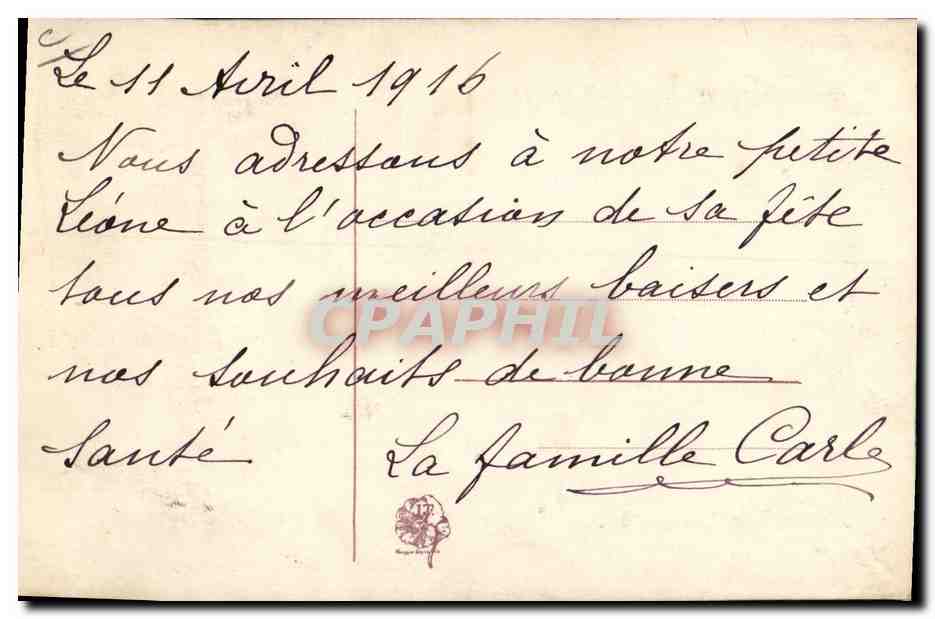 Le 11 Avril 1916
Nous adressons à notre petite
Léone à l'occasion de sa fête
tous nos meilleurs baisers et
CPAPHIL
nos souhaits de bonne
santé
La famille Carle